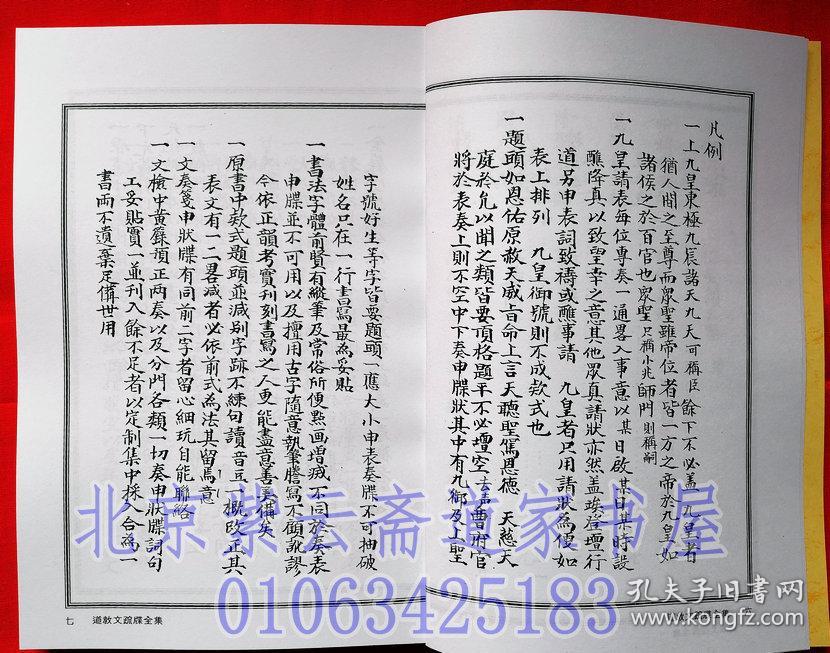 凡例
一上九皇東極九宸諸天九天可稱臣餘下不必蓋九皇者
猶人間之至尊而眾聖雖帝位者皆一方之帝於九皇如
諸侯之於百官也眾聖只稱小兆師門則稱嗣
一九皇請表每位專奏一通畧入事意以某日啟某日某時設
醮降真以致望幸之意其他眾真請狀亦然蓋登壇行
道另申表詞致禱或醮事請 九皇者只用請狀為便如
表上排列 九皇御號則不成款式也
一題頭如恩佑原赦天威旨命上言天聽聖駕恩德 天慈天
庭於允以聞之類皆要項格題平不必壇空 曹府官
將於表奏上則不空中下奏申牒狀其中有九御及上聖
字號好生等字皆要題頭一應大小申表奏牒不可抽破
姓名只在一行書寫最為妥貼
一書法字體前賢有縱筆及常俗所便點画增減不同於奏表
申牒並不可用以及擅用古字隨意執筆謄寫不顧訛謬
今依正韻考實刊刻書寫之人更能盡意善美備矣
一原書中款式題頭並減別字跡不練句讀音 概改正其
表文有一二畧減者必依前式為法其留馬意
一文奏箋申狀牒有同前二字者留心細玩自能聯絡
一文檢中黃籙預正兩奏以及分門各類一切奏申狀牒詞句
工妥貼實一並刊入餘不足者以定制集中採入合為一
書兩不遺棄足備世用
七 道教文疏牒全集
北京紫云斋道家书屋
01063425183
孔夫子旧书网
www.kongfz.com